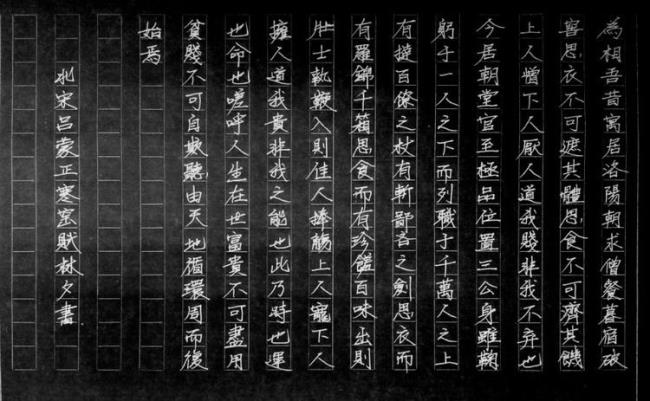 為相吾昔寓居洛陽朝求僧餐暮宿破
窖思衣不可遮其體思食不可濟其饑
上人憎下人厭人道我賤非我不弃也
今居朝堂官至極品位置三公身雖鞠
躬于一人之下而列職于千萬人之上
有撻百僚之杖有斬鄙吝之劍思衣而
有羅錦千箱思食而有珍饈百味出則
壯士執鞭入則佳人捧觴上人寵下人
擁人道我貴非我之能也此乃時也運
也命也嗟呼人生在世富貴不可盡用
貧賤不可自欺聽由天地循環周而復
始焉
北宋吕蒙正寒窑賦林夕書